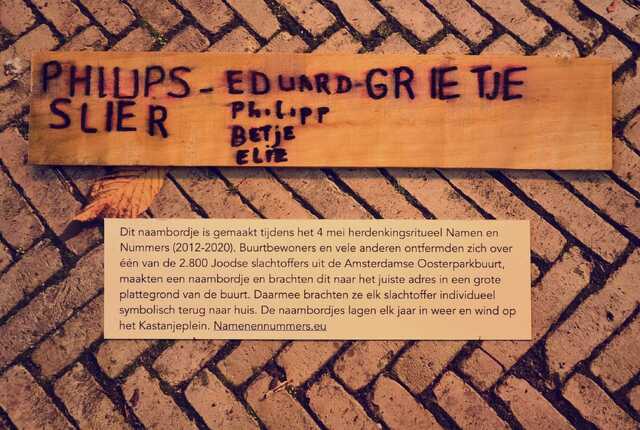 PHILIPS - EDUARD-GRIETJE
SLIER Philipp
BETJE
ELIE
Dit naambordje is gemaakt tijdens het 4 mei herdenkingsritueel Namen en
Nummers (2012-2020). Buurtbewoners en vele anderen ontfermden zich over
één van de 2.800 Joodse slachtoffers uit de Amsterdamse Oosterparkbuurt,
maakten een naambordje en brachten dit naar het juiste adres in een grote
plattegrond van de buurt. Daarmee brachten ze elk slachtoffer individueel
symbolisch terug naar huis. De naambordjes lagen elk jaar in weer en wind op
het Kastanjeplein. Namenennummers.eu